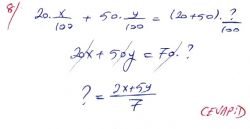 8/ 20. x/100 + 50. y/100 = (20+50). ?/100
20x + 50y = 70. ?
? = 2x+5y/7
CEVAP: D